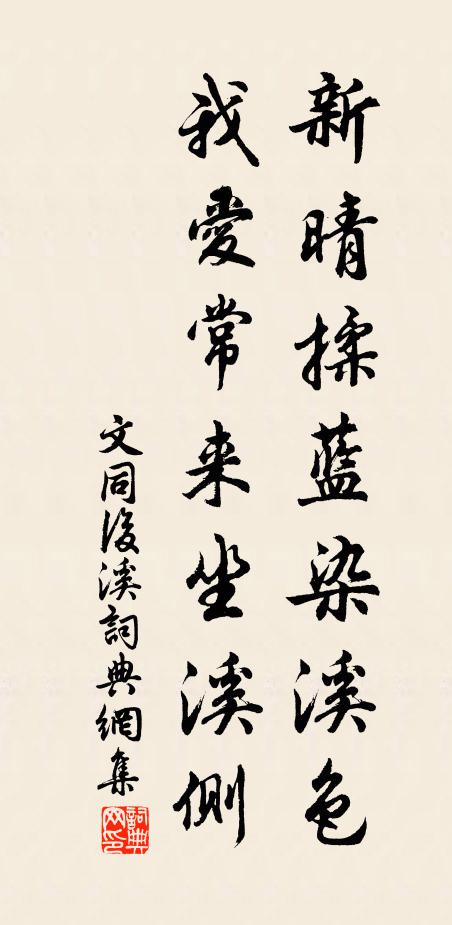 新晴揉藍染溪色
我愛常来坐溪側
文同後溪詞典網集
詞典网印